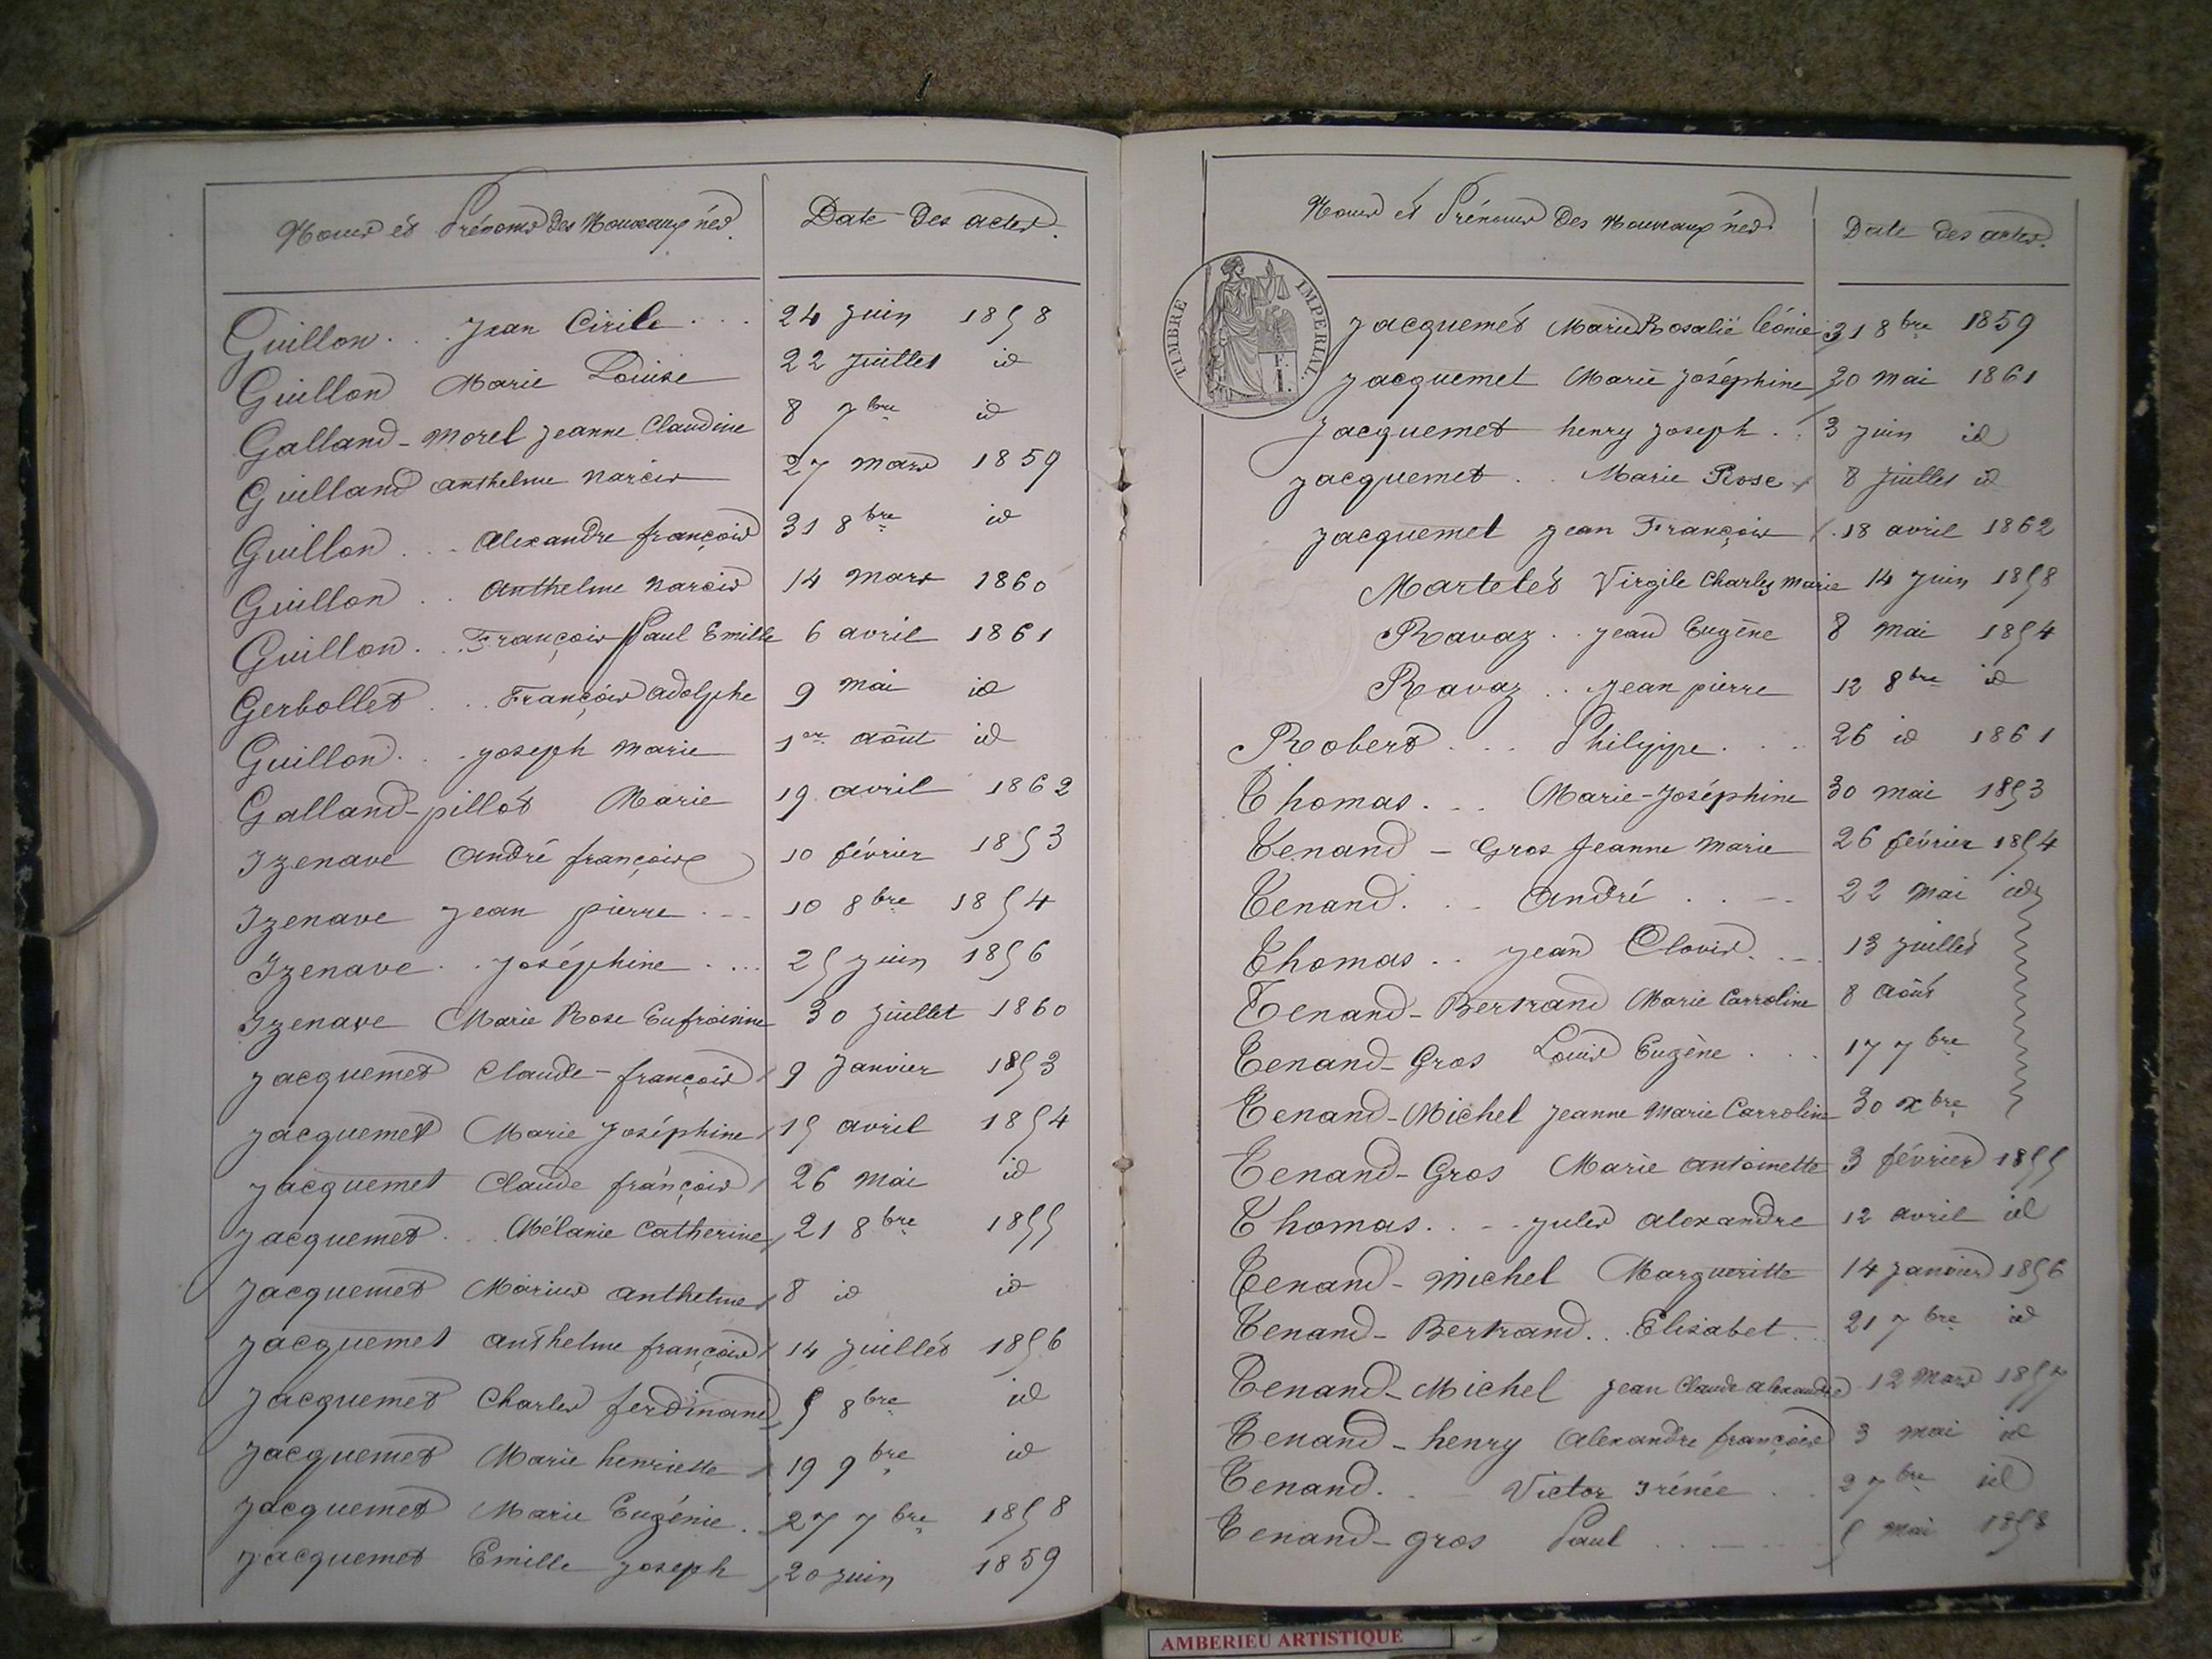 Noms et Prénoms des Nouveaux nés. Date des actes.
Guillon . . . Jean Cirile . . . 24 juin 1858
Guillon Marie Louise 22 juillet id
Galland-Morel Jeanne Claudine 8 7bre id
Guilland Anthelme Narcis 27 mars 1859
Guillon . . . Alexandre françois 31 8bre id
Guillon . . Anthelme Narcis 14 mars 1860
Guillon . . François Paul Emille 6 avril 1861
Gerbollet . . . François adolphe 9 mai id
Guillon . . . joseph Marie 1er août id
Galland-pillot Marie 19 avril 1862
Izenave André françois 10 février 1853
Izenave Jean pierre . . . 10 8bre 1854
Izenave . . Joséphine . . . . 25 juin 1856
Izenave Marie Rose Eufroisine 30 juillet 1860
Jacquemet Claude-françois 9 Janvier 1853
Jacquemet Marie Joséphine 15 avril 1854
Jacquemet Claude françois 26 mai id
Jacquemet . . . Mélanie Catherine 21 8bre 1855
Jacquemet Marius Anthelme 8 id id
Jacquemet Anthelme françois 14 juillet 1856
Jacquemet Charles ferdinand 5 8bre id
Jacquemet Marie henriette 19 9bre id
Jacquemet Marie Eugénie . . 27 7bre 1858
Jacquemet Emille Joseph 20 juin 1859
Noms et Prénoms des Nouveaux nés. Date des actes.
TIMBRE IMPÉRIAL
Jacquemet Marie Rosalie Léonie 31 8bre 1859
Jacquemet Marie Joséphine 20 mai 1861
Jacquemet henry Joseph . . 3 juin id
Jacquemet . . Marie Rose 8 juillet id
Jacquemet Jean François 18 avril 1862
Martelet Virgile Charles Marie 14 juin 1858
Ravaz . . Jean Eugène 8 mai 1854
Ravaz . . Jean pierre 12 8bre id
Robert . . . Philippe . . . 26 id 1861
Thomas . . . Marie-Joséphine 30 mai 1853
Tenand - Gros Jeanne Marie 26 février 1854
Tenand . . . André . . . 22 mai id
Thomas . . Jean Clovis . . . 13 juillet
Tenand-Bertrand Marie Carroline 8 août
Tenand-Gros Louis Eugène . . . 17 7bre
Tenand-Michel Jeanne Marie Carroline 30 xbre
Tenand-Gros Marie Antoinette 3 février 1855
Thomas . . . . Jules alexandre 12 avril id
Tenand-Michel Margueritte 14 janvier 1856
Tenand-Bertrand . . Elisabet . . 21 7bre id
Tenand-Michel Jean Claude alexandre 12 mars 1857
Tenand-henry Alexandre françois 3 mai id
Tenand . . . Victor Irénée . . 2 7bre id
Tenand-gros Paul . . . . . 5 mai 1858
AMBERIEU ARTISTIQUE